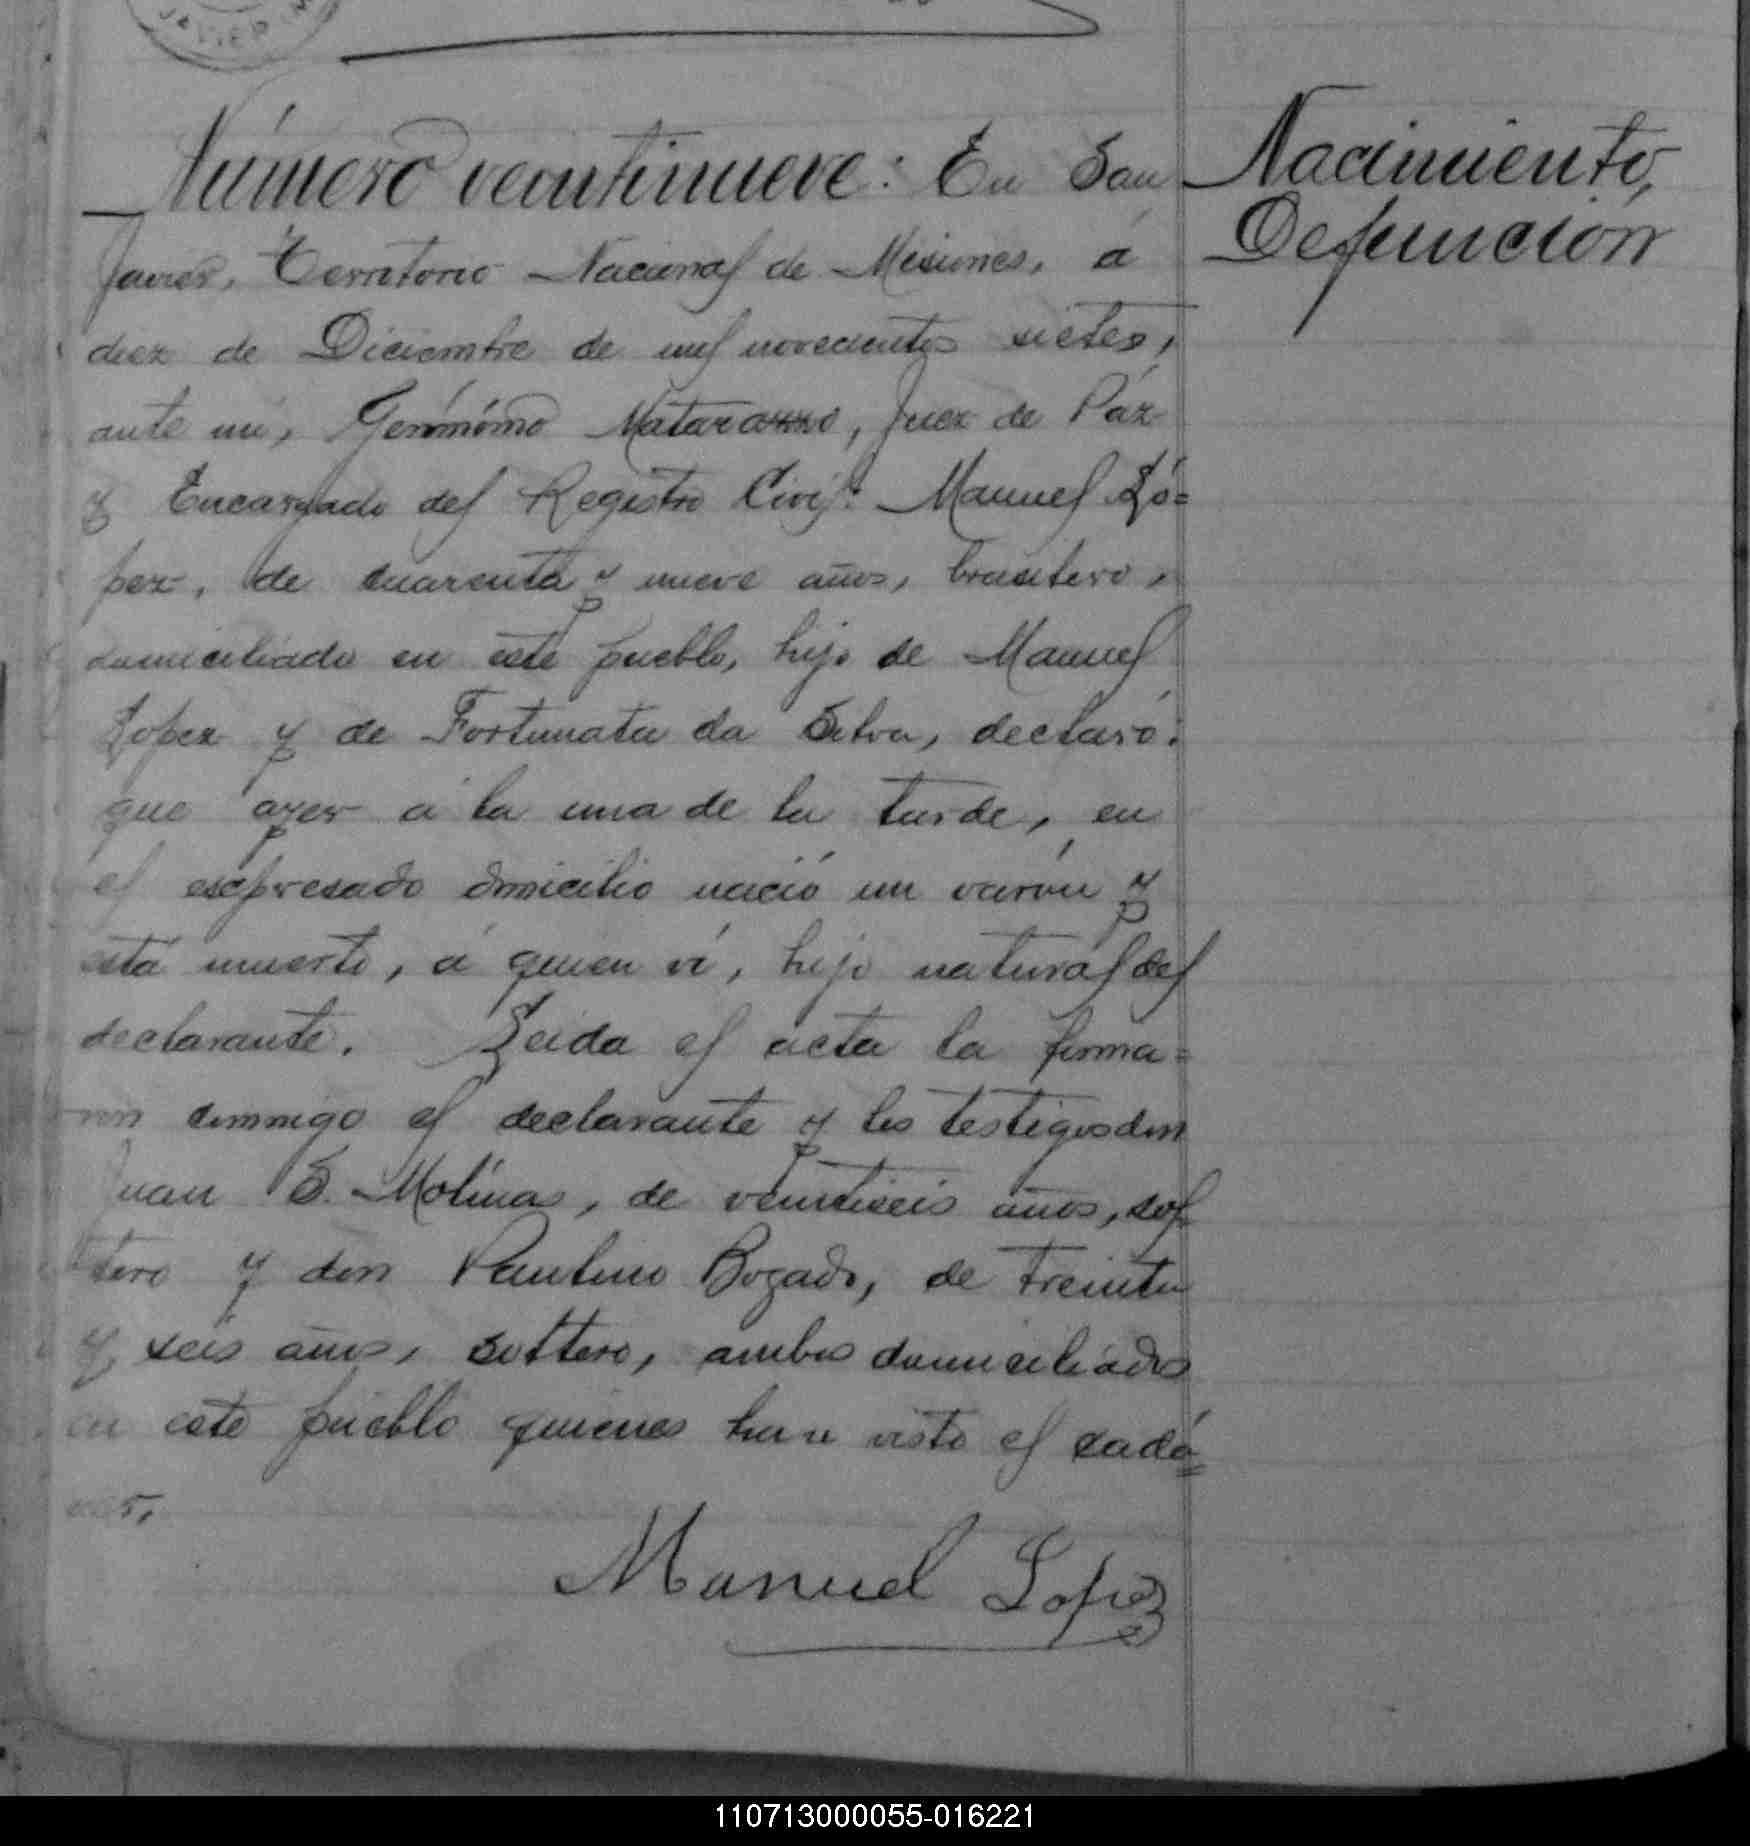 Número veintinueve: En San
Javier, Territorio Nacional de Misiones, á
diez de Diciembre de mil novecientos siete,
ante mi, Gerónimo Matarazzo, Juez de Páz
y Encargado del Registro Civil: Manuel Ló=
pez, de cuarenta y nueve años, brasilero,
domiciliado en este pueblo, hijo de Manuel
Lopez y de Fortunata da Silva, declaró:
que ayer á la una de la tarde, en
el espresado domicilio nació un varón y
está muerto, á quien ví, hijo natural del
declarante. Leida el acta la firma=
ron conmigo el declarante y los testigos don
Juan S. Molinas, de veintiseis años, sol
tero y don Paulino Bogado, de treinta
y seis años, soltero, ambos domiciliados
en este pueblo quienes han visto el cadá=
ver.
Manuel Lopez
Nacimiento,
Defunción
110713000055-016221